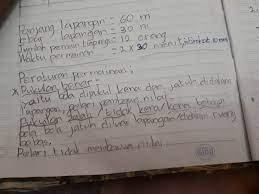 Panjang lapangan = 60 m
Lebar lapangan = 30 m
Jumlah pemain tiap regu = 12 orang
Waktu permainan = 2 x 30 menit
Peraturan permainan;
* Pukulan benar;
yaitu bola dipukul kena dan jatuh didalam
lapangan, pelari nilai
Pukulan salah / tidak kena / kena tetapi
bola jatuh diluar lapangan /
bebas,
Pelari tidak membawa nilai